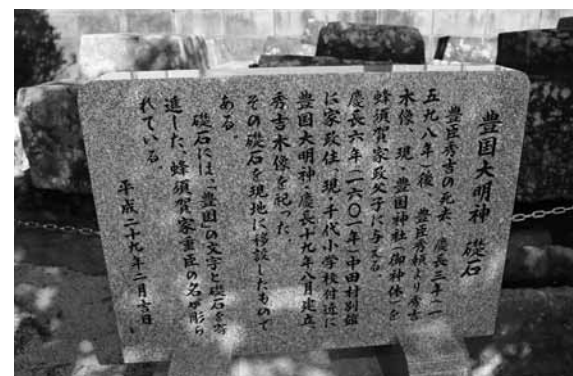 豊国大明神　礎石
豊臣秀吉の死去　慶長三年（一
五九八年）後、豊臣秀頼より秀吉
木像、現・豊国神社（御神体）を
蜂須賀家政父子に与える。
慶長六年（一六〇一年）中田村別館
に家政住、現・千代小学校付近に
豊国大明神・慶長十九年八月建立、
秀吉木像を祀った。
その礎石を現地に移設したもので
ある。
礎石には、「豊国」の文字と礎石を寄
進した、蜂須賀家重臣の名が彫ら
れている。
平成二十九年二月吉日